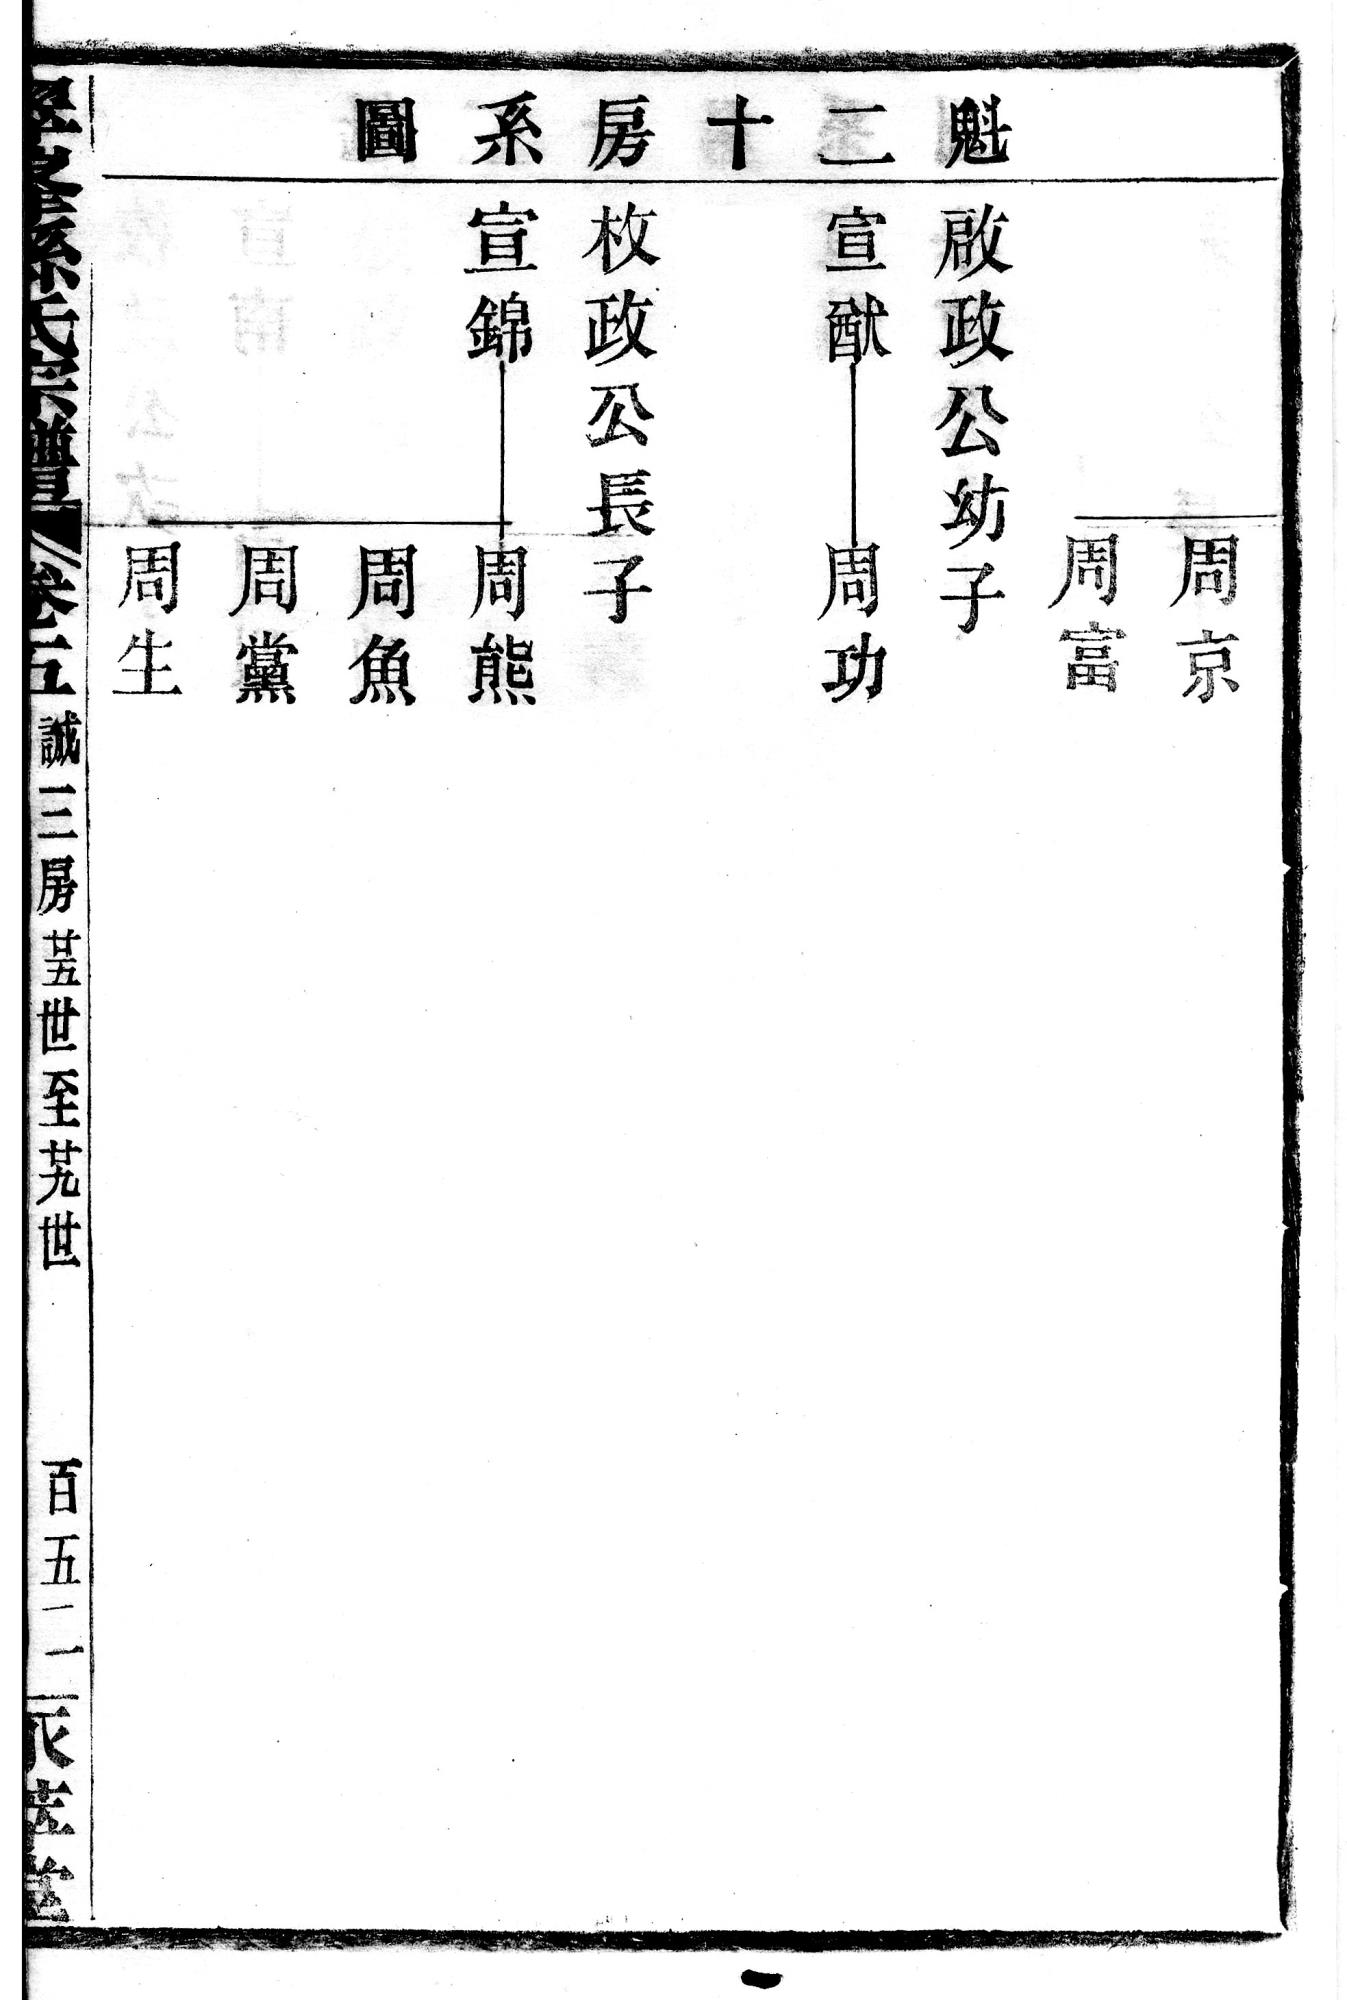 魁二十房系圖
周京
周富
啟政公幼子
宣猷
周功
枚政公長子
宣錦
周熊
周魚
周黨
周生
孫氏宗譜
卷五
誠三房
廿五世至廿九世
百五二